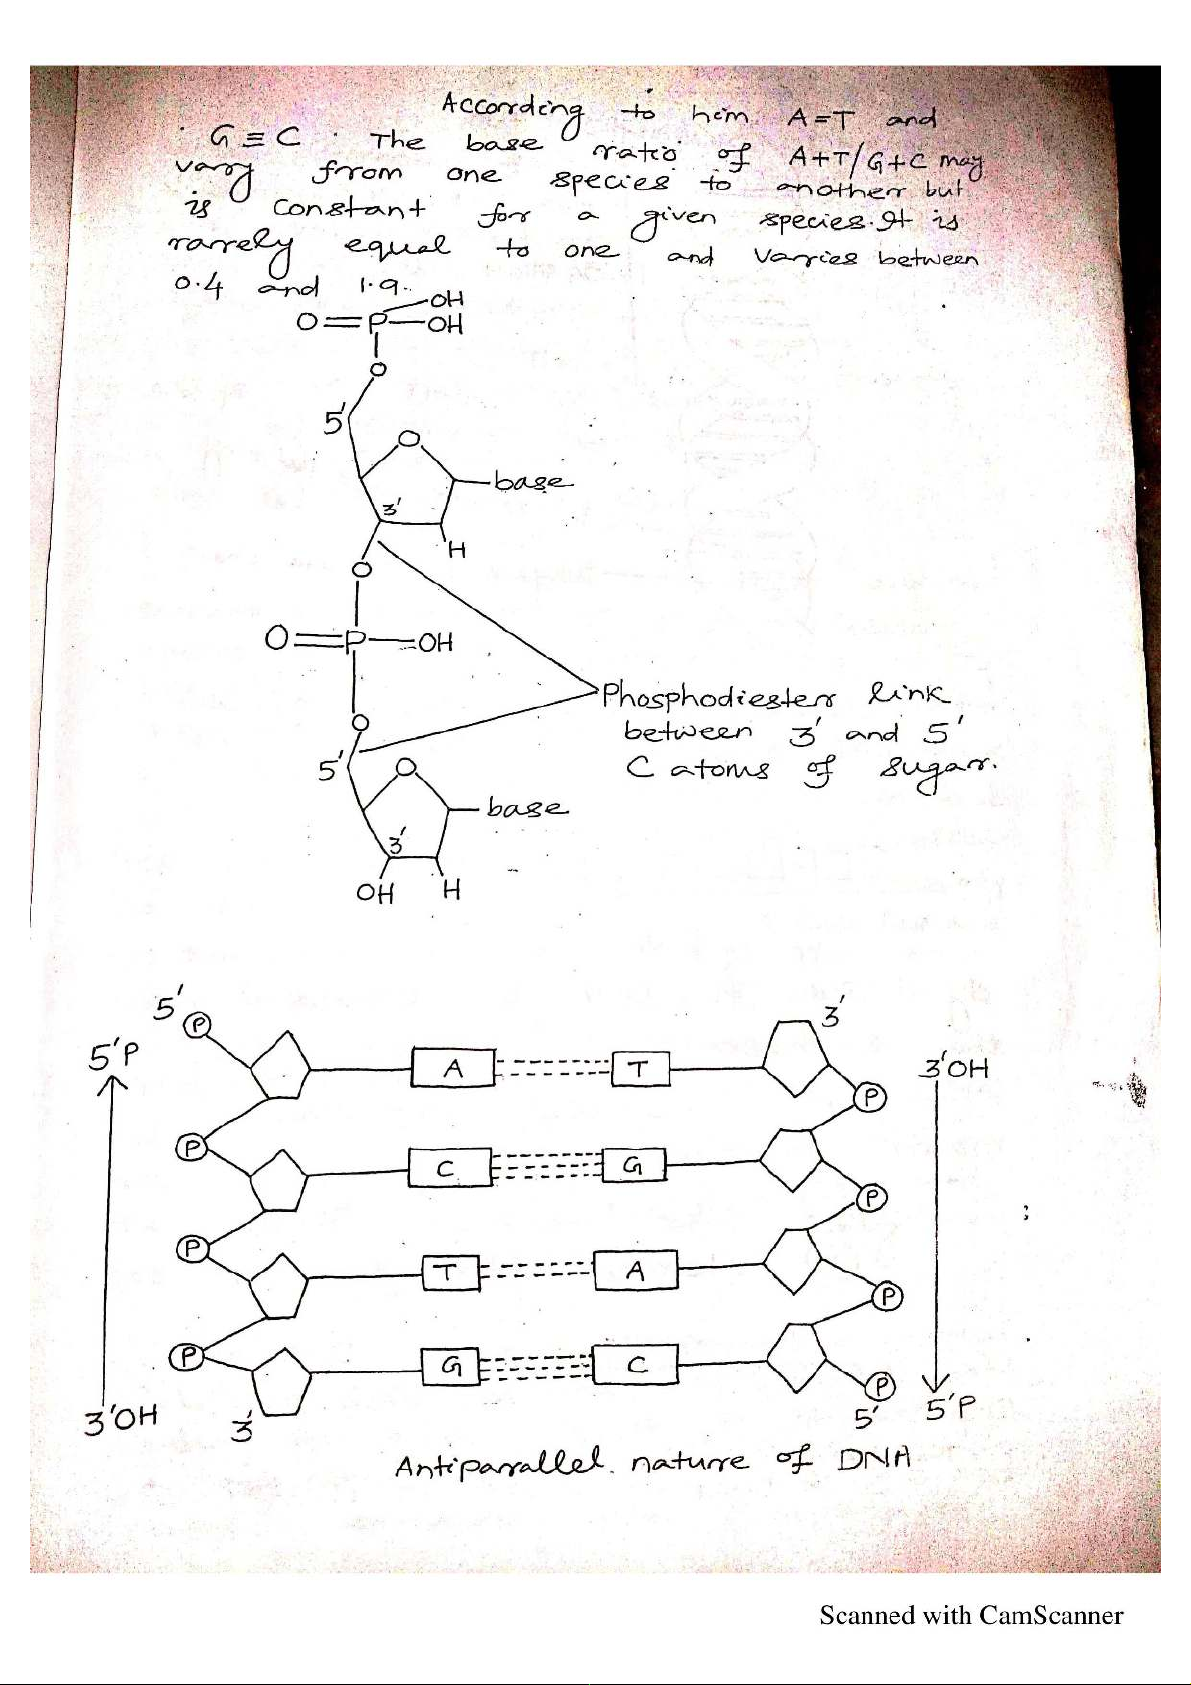 According to him A=T and
G≡C. The base ratio of A+T/G+C may
vary from one species to another but
is constant for a given species. It is
rarely equal to one and varies between
0.4 and 1.9.
OH
O=P—OH
O
5'
O
base
3'
H
O
O=P—OH
Phosphodiester link
between 3' and 5'
C atoms of sugar.
O
5'
O
base
3'
OH H
5' P 3'
5'P A T 3'OH
P
P C G
P
P T A
P
P G C
P
3'OH 3' 5' 5'P
Antiparallel nature of DNA
Scanned with CamScanner